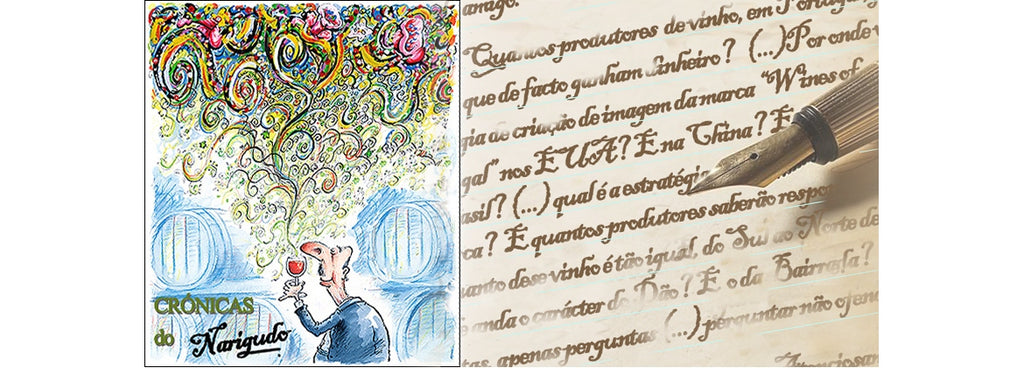 CRÓNICAS
do Narigudo
amago.
Quantos produtores de vinho, em Portugal,
que de facto ganham dinheiro? (...) Por onde
gia de criação de imagem da marca “Wines of
gal” nos EUA? E na China? E
asil? (...) qual é a estratégia
ca? E quantos produtores saberão respo
uanto desse vinho é tão igual, do Sul ao Norte de
e anda o carácter do Dão? E o da Bairrada?
tas, apenas perguntas (...) perguntar não ofend